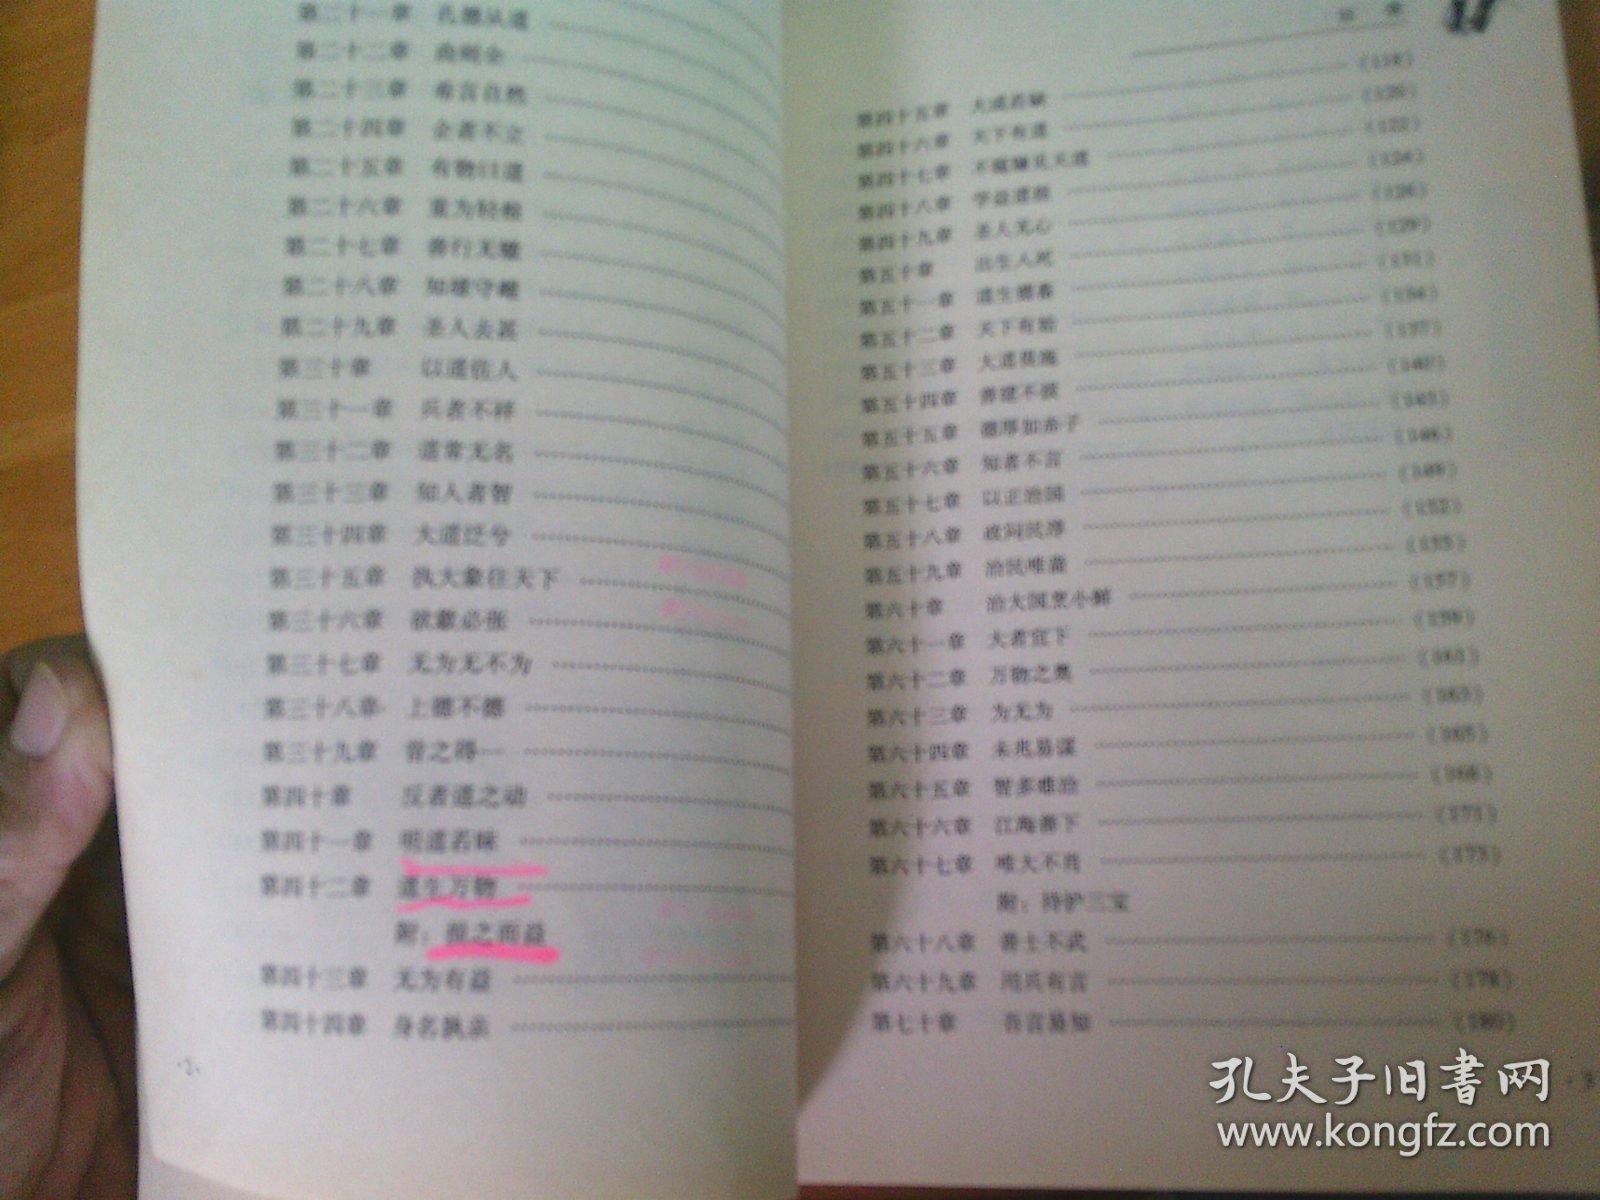 第二十一章 孔德从道
第二十二章 曲则全
第二十三章 希言自然
第二十四章 企者不立
第二十五章 有物曰道
第二十六章 重为轻根
第二十七章 善行无辙
第二十八章 知雄守雌
第二十九章 圣人去甚
第三十章 以道佐人
第三十一章 兵者不祥
第三十二章 道常无名
第三十三章 知人者智
第三十四章 大道泛兮
第三十五章 执大象往天下
第三十六章 欲歙必张
第三十七章 无为无不为
第三十八章 上德不德
第三十九章 昔之得一
第四十章 反者道之动
第四十一章 明道若昧
第四十二章 道生万物
附：损之而益
第四十三章 无为有益
第四十四章 身名孰亲
·2·
目 录
第四十五章 大成若缺 (118)
第四十六章 天下有道 (120)
第四十七章 不窥牖见天道 (122)
第四十八章 学益道损 (124)
第四十九章 圣人无心 (126)
第五十章 出生入死 (129)
第五十一章 道生德畜 (131)
第五十二章 天下有始 (134)
第五十三章 大道甚施 (137)
第五十四章 善建不拔 (140)
第五十五章 德厚如赤子 (143)
第五十六章 知者不言 (146)
第五十七章 以正治国 (149)
第五十八章 政闷民淳 (152)
第五十九章 治民唯啬 (155)
第六十章 治大国烹小鲜 (157)
第六十一章 大者宜下 (159)
第六十二章 万物之奥 (161)
第六十三章 为无为 (163)
第六十四章 未兆易谋 (165)
第六十五章 智多难治 (168)
第六十六章 江海善下 (171)
第六十七章 唯大不肖 (173)
附：持护三宝
第六十八章 善士不武 (176)
第六十九章 用兵有言 (178)
第七十章 吾言易知 (180)
孔夫子旧書网
www.kongfz.com